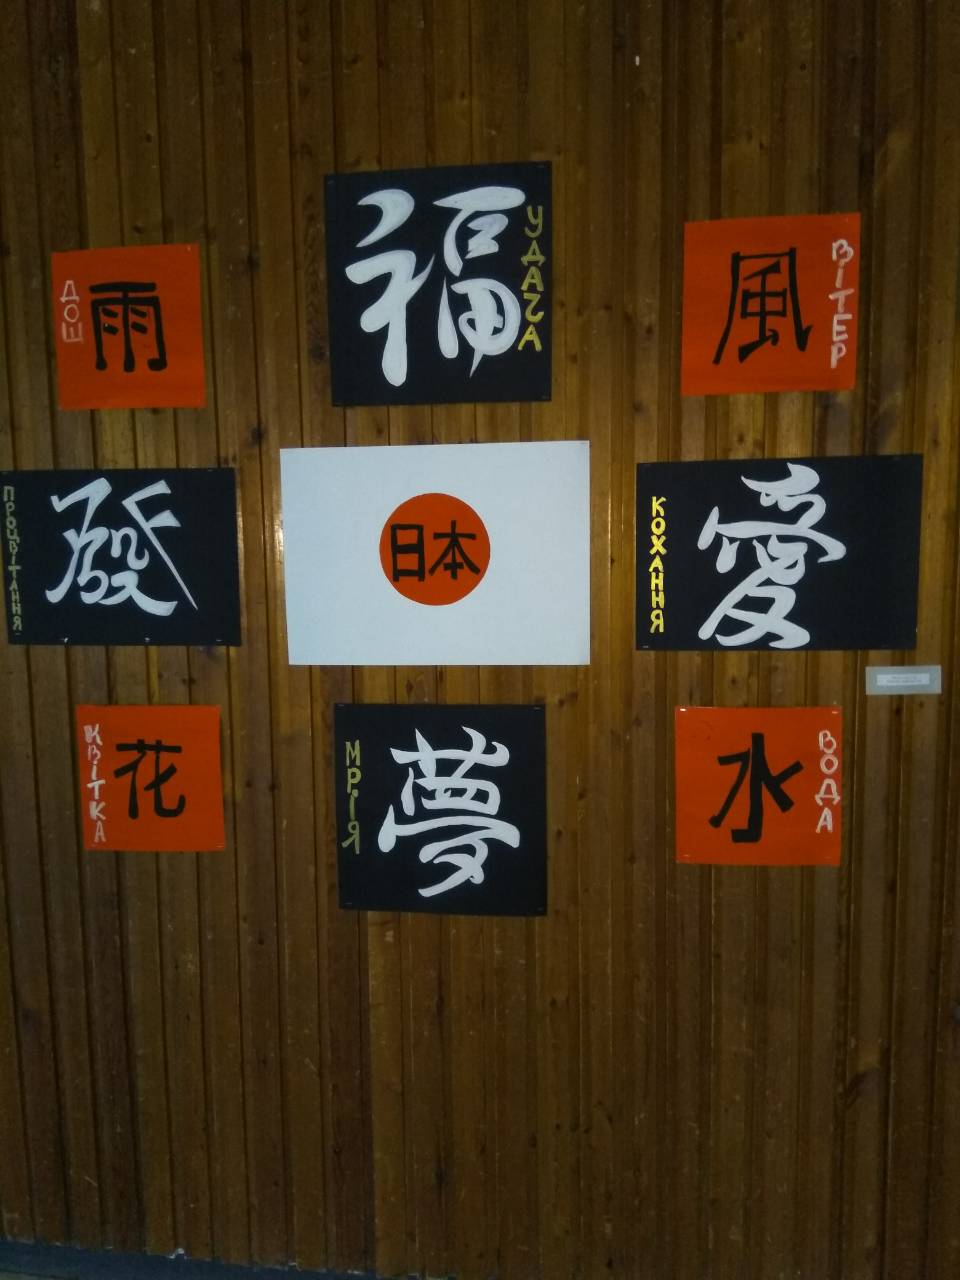 ДОЩ
雨
福
УДАЧА
風
ВІТЕР
ПРОЦВІТАННЯ
發
日本
КОХАННЯ
愛
КВІТКА
花
МРІЯ
夢
水
ВОДА